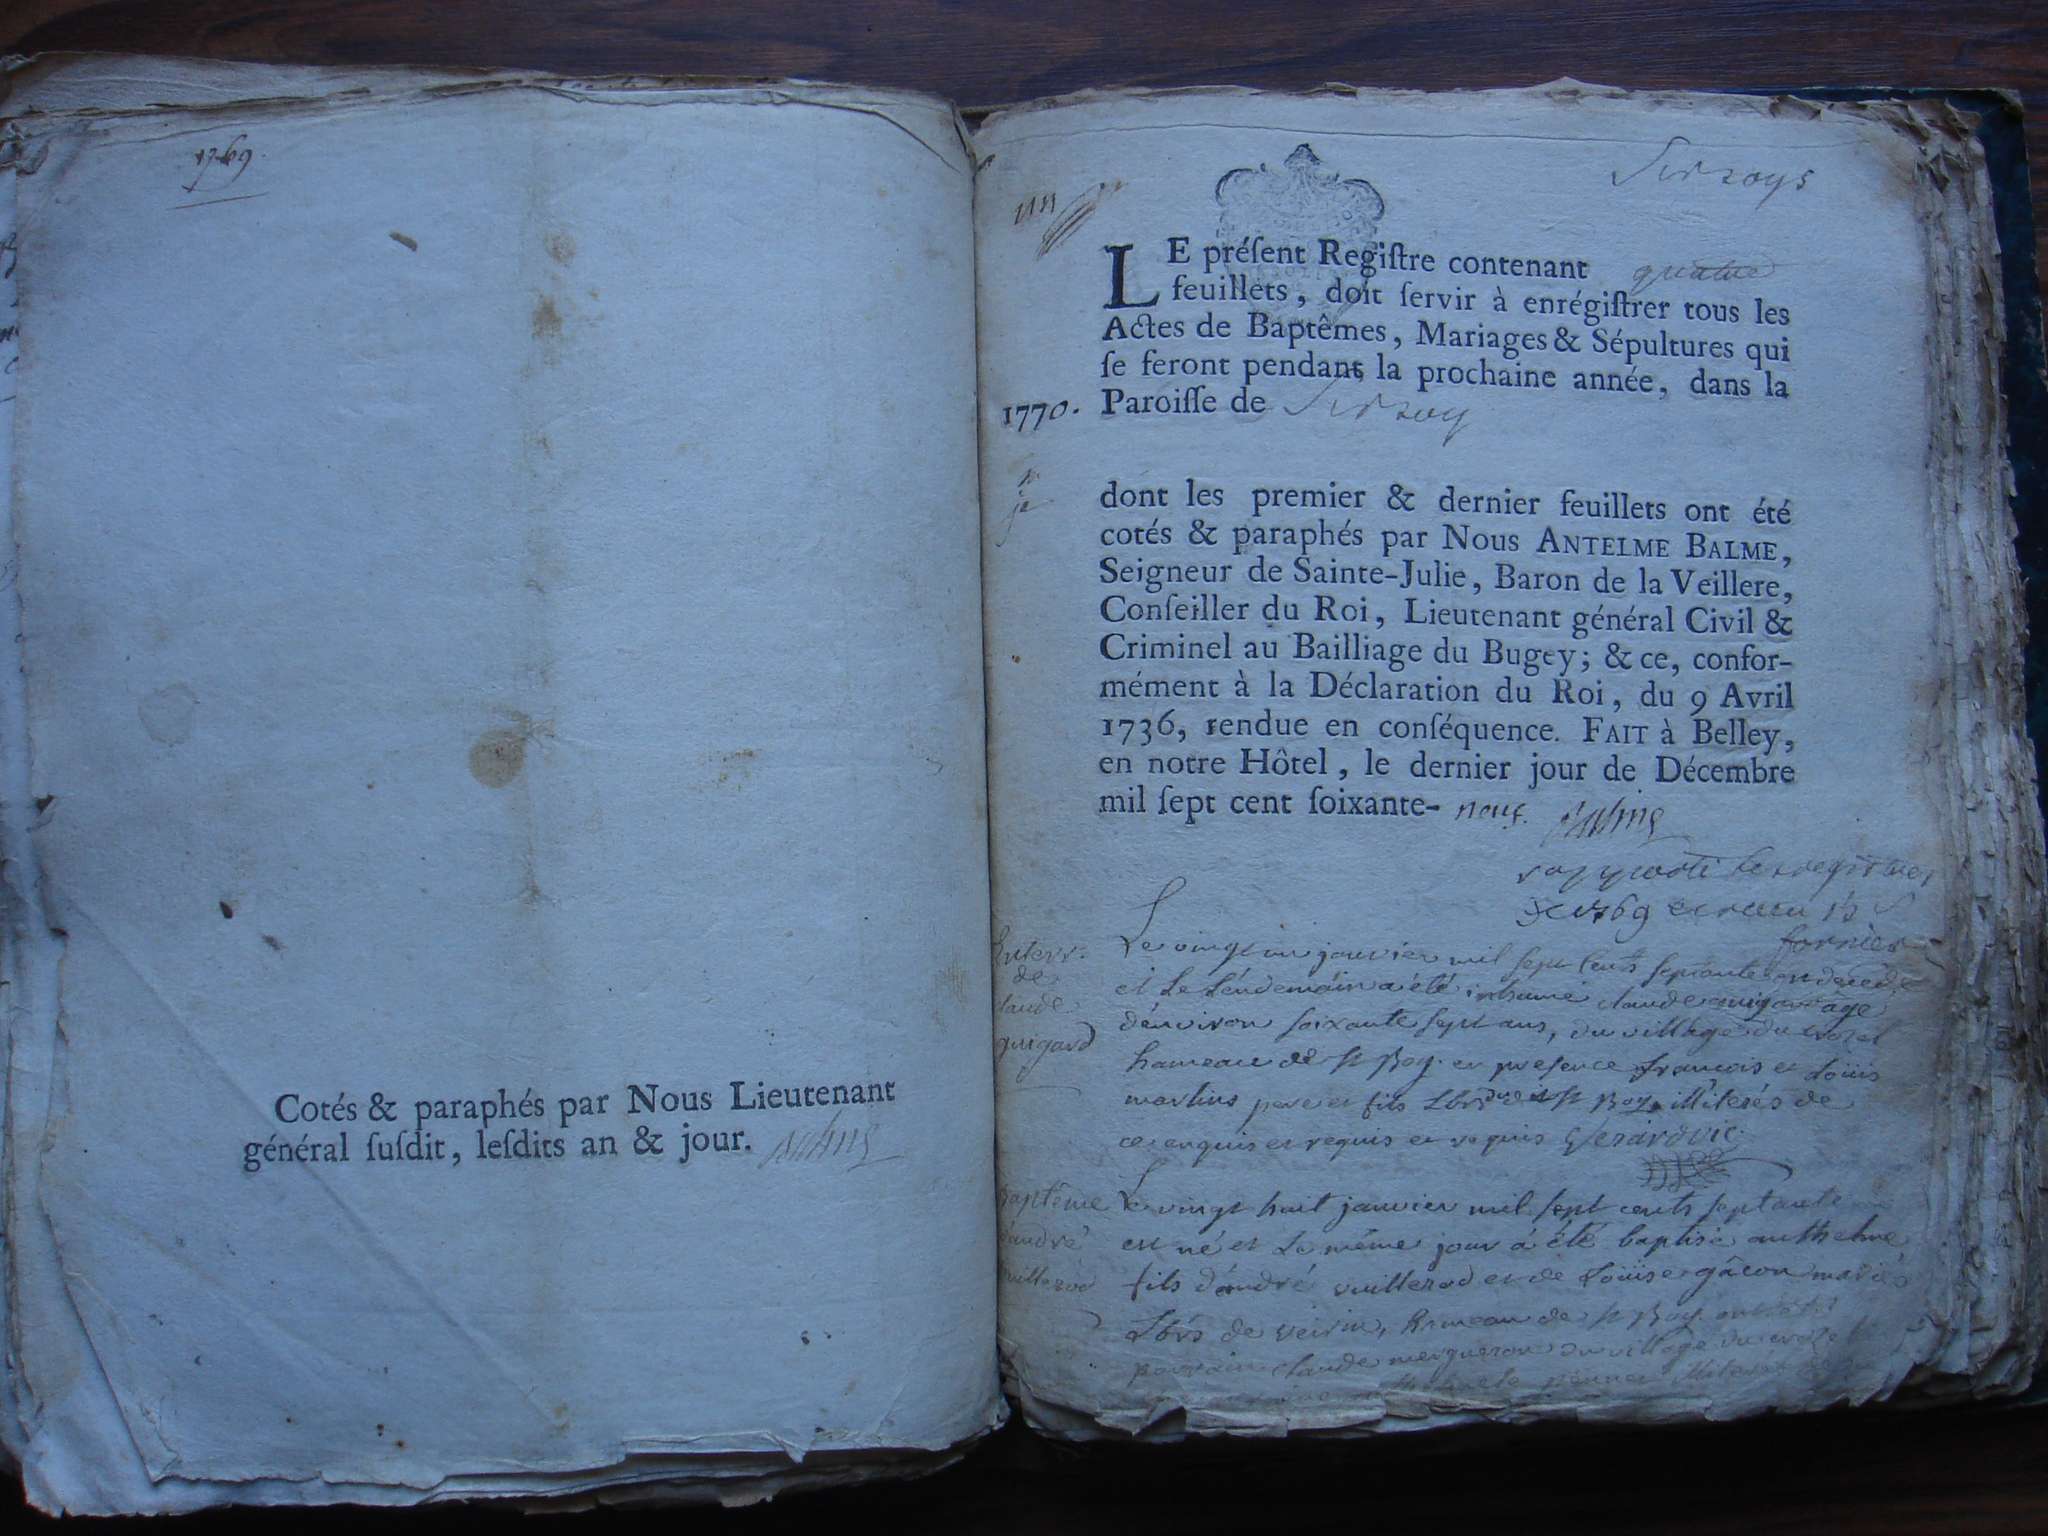 1769.
Cotés & paraphés par Nous Lieutenant
général ſuſdit, leſdits an & jour.
LE préſent Regiſtre contenant quatre
feuillets, doit ſervir à enrégiſtrer tous les
Actes de Baptêmes, Mariages & Sépultures qui
ſe feront pendant la prochaine année, dans la
1770. Paroiſſe de
dont les premier & dernier feuillets ont été
cotés & paraphés par Nous ANTELME BALME,
Seigneur de Sainte-Julie, Baron de la Veillere,
Conſeiller du Roi, Lieutenant général Civil &
Criminel au Bailliage du Bugey; & ce, confor-
mément à la Déclaration du Roi, du 9 Avril
1736, rendue en conſéquence. FAIT à Belley,
en notre Hôtel, le dernier jour de Décembre
mil ſept cent ſoixante- neuf.
rapporté le registre
1769
fornier
Enterr.
de
claude
guigard
Le vingt un janvier mil sept cents septante est decedé
et le lendemain a été inhumé claude guigard agé
d'environ soixante sept ans, du village du
hameau de st Boy. en presence francois et Loüis
martins pere et fils de st Boy, illiterés de
ce enquis et requis
Baptême
d'andré
vuillerod
Le vingt huit janvier mil sept cents septante
est né et le même jour a été baptisé anthelme
fils d'andré vuillerod et de Loüise gâcon mariés
de veirin, hameau de st Boy.
parrain claude du village du